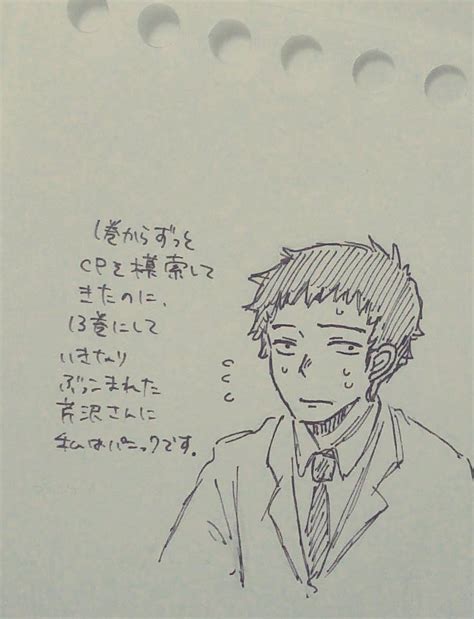 1巻からずっと
CPを模索して
きたのに、
13巻にして
いきなり
ぶっこまれた
芹沢さんに
私はパニックです.